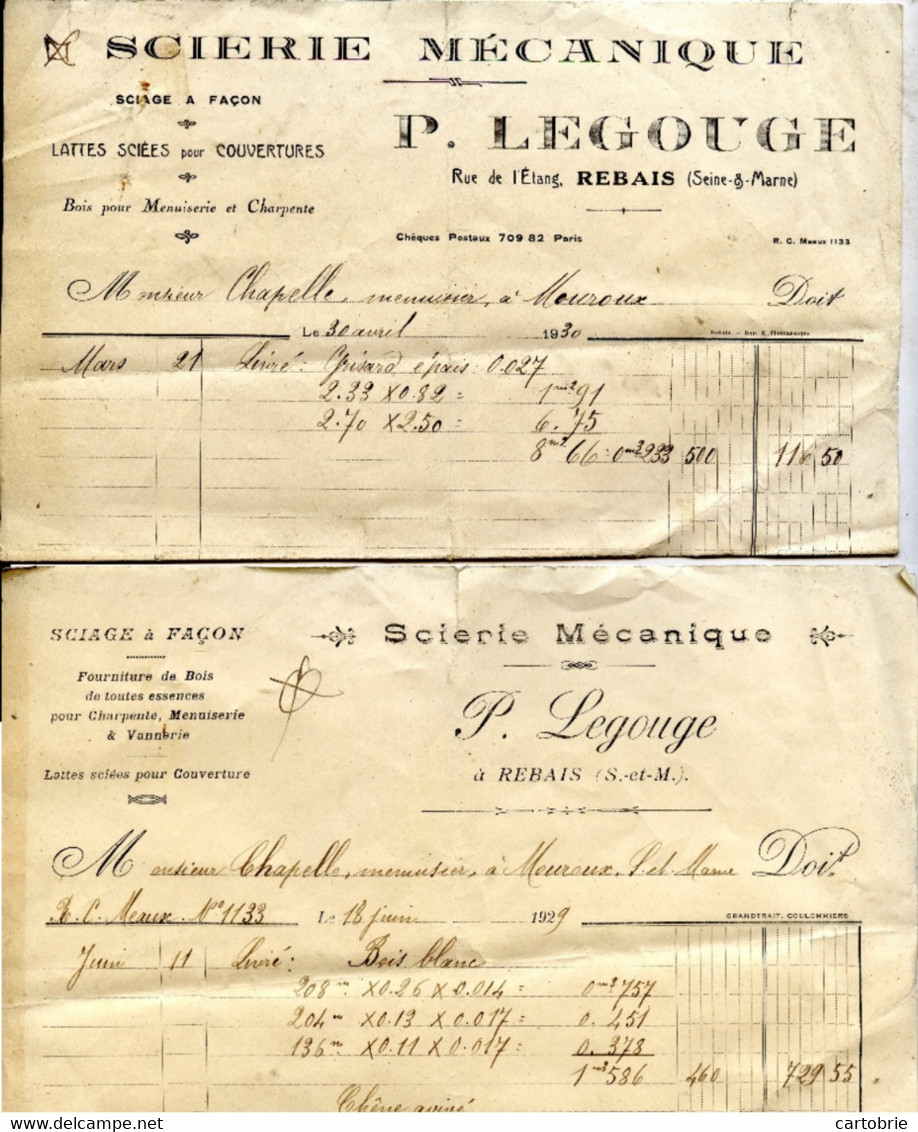 SCIERIE MÉCANIQUE
SCIAGE A FAÇON
LATTES SCIÉES pour COUVERTURES
Bois pour Menuiserie et Charpente
P. LEGOUGE
Rue de l'Étang, REBAIS (Seine-&-Marne)
Chèques Postaux 709 82 Paris
R. C. Meaux 1133
Monsieur Chapelle, menuisier, à Mouroux Doit
Le 30 avril 1930
Mars 21 Livré: Grisard épais: 0.027
2.33 x 0.82 = 1 m2 91
2.70 x 2.50 = 6.75
8 m2 66 = 0 m3 233 500 116 50
SCIAGE à FAÇON
Fourniture de Bois
de toutes essences
pour Charpente, Menuiserie
& Vannerie
Lattes sciées pour Couverture
Scierie Mécanique
P. Legouge
à REBAIS (S.-et-M.).
Monsieur Chapelle, menuisier, à Mouroux, S. et Marne Doit
R. C. Meaux N° 1133 Le 18 juin 1929
GRANDTRAIT, COULOMMIERS
Juin 11 Livré: Bois blanc
208 m x 0.26 x 0.014 = 0 m3 757
204 m x 0.13 x 0.017 = 0.451
136 m x 0.11 x 0.017 = 0.378
1 m3 586 460 729 55
Chêne avivé
cartobrie